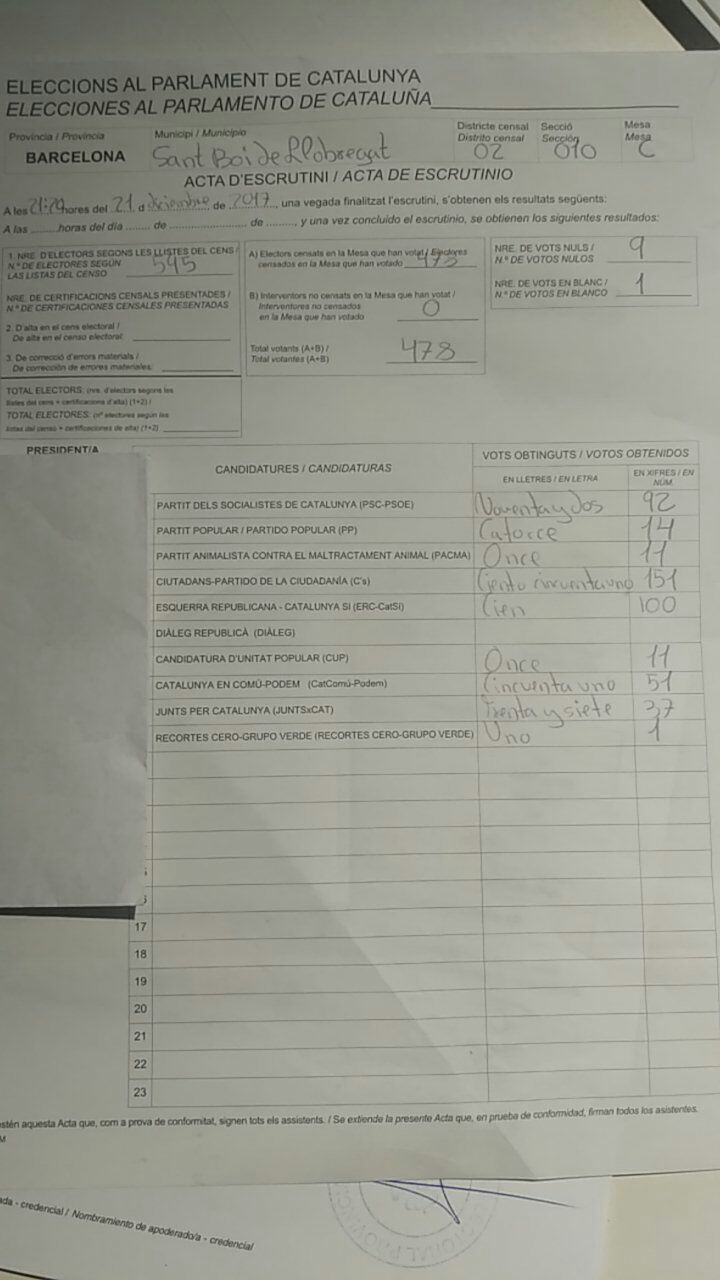 ELECCIONS AL PARLAMENT DE CATALUNYA
ELECCIONES AL PARLAMENTO DE CATALUÑA
Província / Provincia
BARCELONA
Municipi / Municipio
Sant Boi de Llobregat
Districte censal
Distrito censal
02
Secció
Sección
010
Mesa
Mesa
C
ACTA D'ESCRUTINI / ACTA DE ESCRUTINIO
A les 21:29 hores del 21 d diciembre de 2017, una vegada finalitzat l'escrutini, s'obtenen els resultats següents:
A las ........ horas del día ....... de ........................ de ........, y una vez concluido el escrutinio, se obtienen los siguientes resultados:
1. NRE. D'ELECTORS SEGONS LES LLISTES DEL CENS /
N.º DE ELECTORES SEGÚN
LAS LISTAS DEL CENSO
595
NRE. DE CERTIFICACIONS CENSALS PRESENTADES /
N.º DE CERTIFICACIONES CENSALES PRESENTADAS
2. D'alta en el cens electoral /
De alta en el censo electoral:
3. De correcció d'errors materials /
De corrección de errores materiales:
TOTAL ELECTORS: (nre. d'electors segons les
llistes del cens + certificacions d'alta) (1+2) /
TOTAL ELECTORES: (nº electores según las
listas del censo + certificaciones de alta) (1+2)
A) Electors censats en la Mesa que han votat / Electores
censados en la Mesa que han votado 478
B) Interventors no censats en la Mesa que han votat /
Interventores no censados
en la Mesa que han votado
0
Total votants (A+B) /
Total votantes (A+B)
478
NRE. DE VOTS NULS /
N.º DE VOTOS NULOS
9
NRE. DE VOTS EN BLANC /
N.º DE VOTOS EN BLANCO
1
PRESIDENT/A
CANDIDATURES / CANDIDATURAS
VOTS OBTINGUTS / VOTOS OBTENIDOS
EN LLETRES / EN LETRA
EN XIFRES / EN
NÚM.
PARTIT DELS SOCIALISTES DE CATALUNYA (PSC-PSOE) Noventa y dos 92
PARTIT POPULAR / PARTIDO POPULAR (PP) Catorce 14
PARTIT ANIMALISTA CONTRA EL MALTRACTAMENT ANIMAL (PACMA) Once 11
CIUTADANS-PARTIDO DE LA CIUDADANÍA (C's) Ciento cincuenta uno 151
ESQUERRA REPUBLICANA - CATALUNYA SI (ERC-CatSí) Cien 100
DIÀLEG REPUBLICÀ (DIÀLEG)
CANDIDATURA D'UNITAT POPULAR (CUP) Once 11
CATALUNYA EN COMÚ-PODEM (CatComú-Podem) Cincuenta uno 51
JUNTS PER CATALUNYA (JUNTSxCAT) Trenta y siete 37
RECORTES CERO-GRUPO VERDE (RECORTES CERO-GRUPO VERDE) Uno 1
17
18
19
20
21
22
23
estén aquesta Acta que, com a prova de conformitat, signen tots els assistents. / Se extiende la presente Acta que, en prueba de conformidad, firman todos los asistentes.
M
ada - credencial / Nombramiento de apoderado/a - credencial